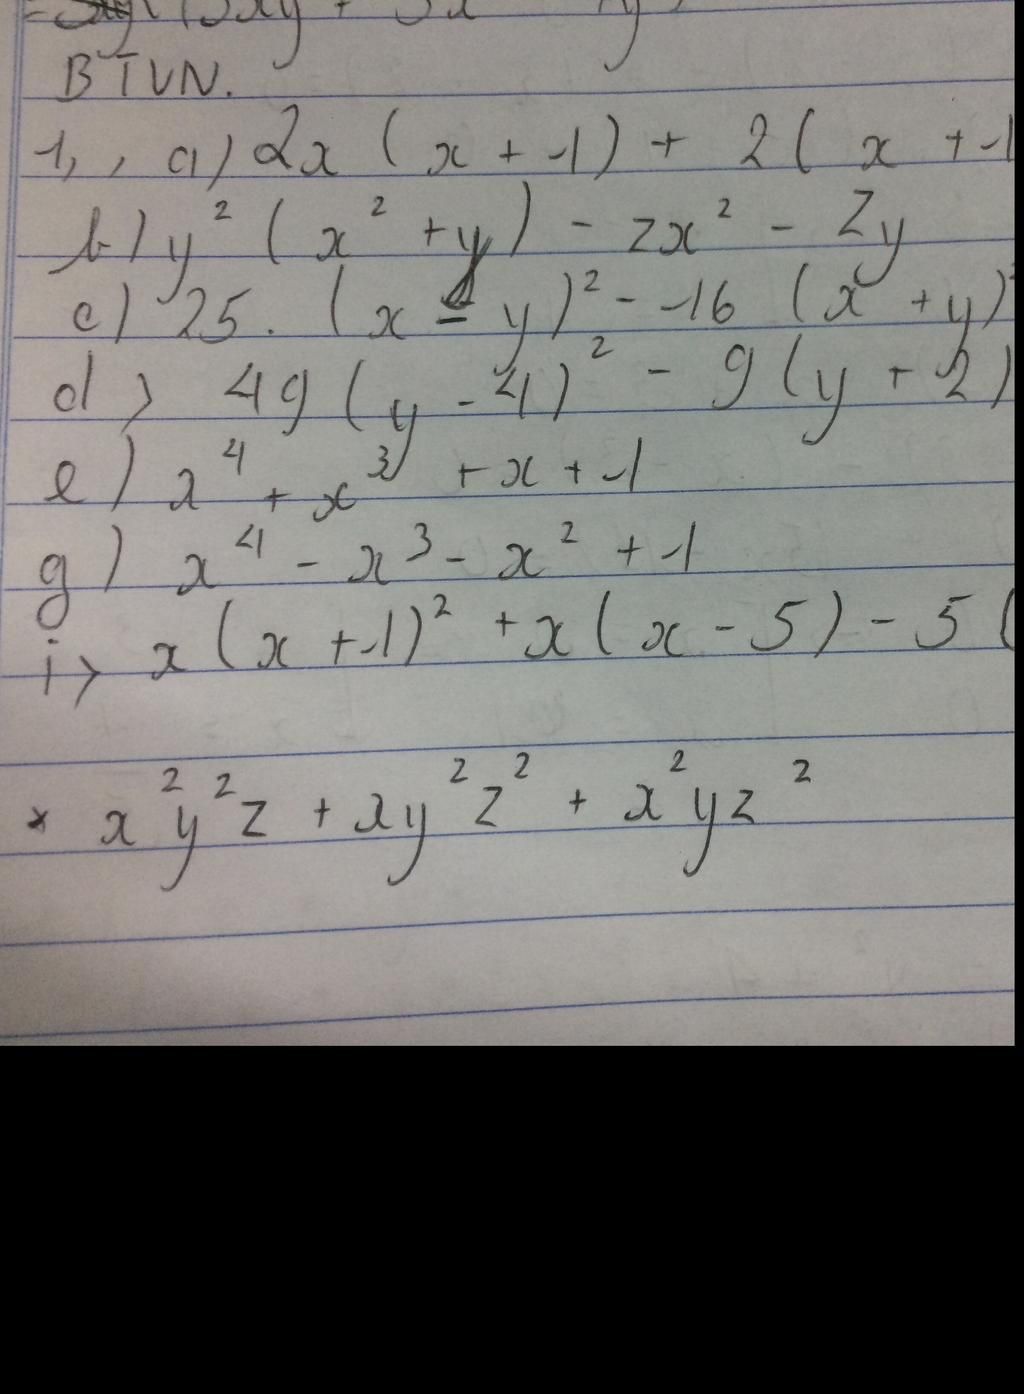 BTVN.
1, a) 2x (x + 1) + 2 (x + 1
b) y² (x² + y) - zx² - zy
c) 25. (x - y)² - 16 (x + y)²
d) 49 (y - 4)² - 9 (y + 2)
e) x⁴ + x³ + x + 1
g) x⁴ - x³ - x² + 1
i) x (x + 1)² + x (x - 5) - 5 (
* x²y²z + xy²z² + x²yz²